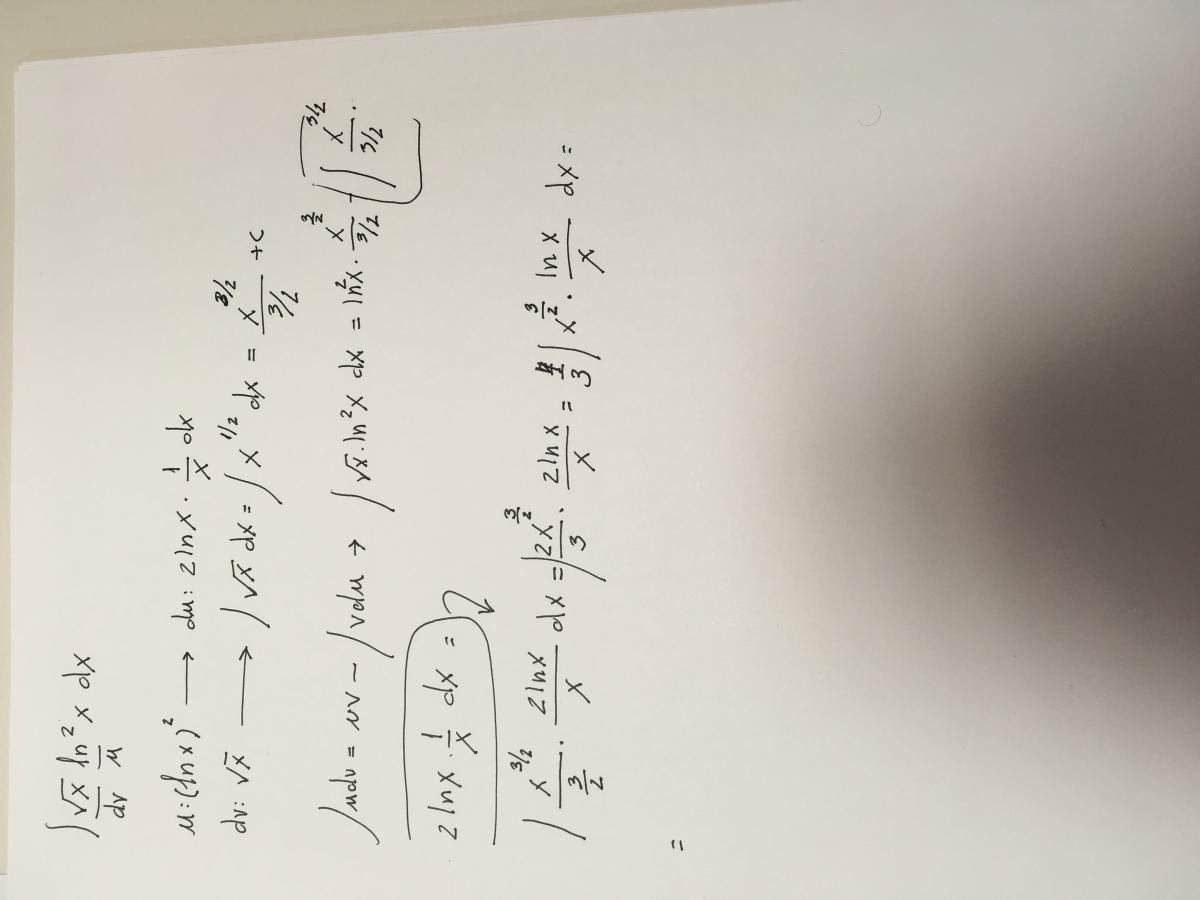 ∫ √x ln² x dx
dv u
u: (ln x)² ⟶ du: 2 ln x · 1/x dx
dv: √x ⟶ ∫ √x dx = ∫ x^1/2 dx = x^3/2 / 3/2 + c
∫ udv = uv − ∫ vdu → ∫ √x · ln² x dx = ln² x · x^3/2 / 3/2 − ∫ x^3/2 / 3/2 ·
2 ln x · 1/x dx =
∫ x^3/2 / 3/2 · 2 ln x / x dx = ∫ 2x^3/2 / 3 · 2 ln x / x = 4/3 ∫ x^3/2 · ln x / x dx =
=